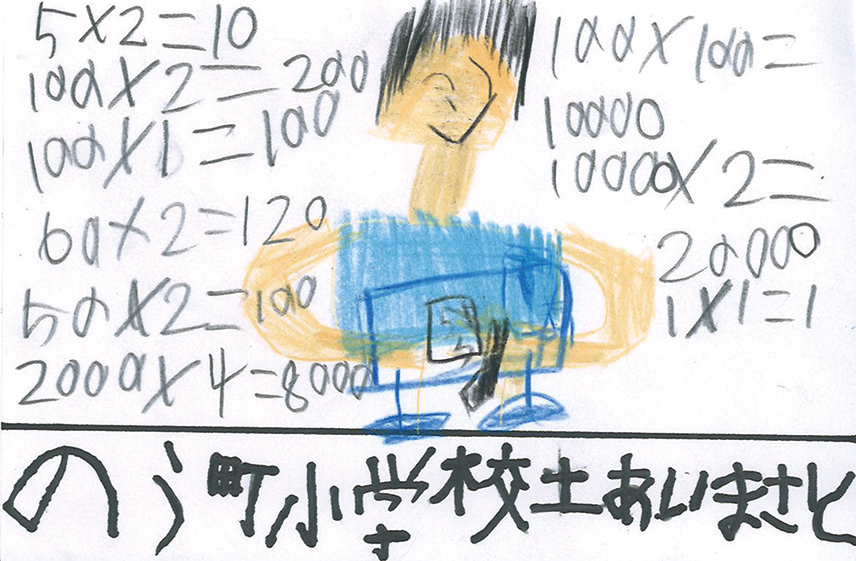 5×2=10
100×2=200
100×1=100
60×2=120
50×2=100
2000×4=8000
100×100=
10000
10000×2=
20000
1×1=1
のう町小学校土あいまさと